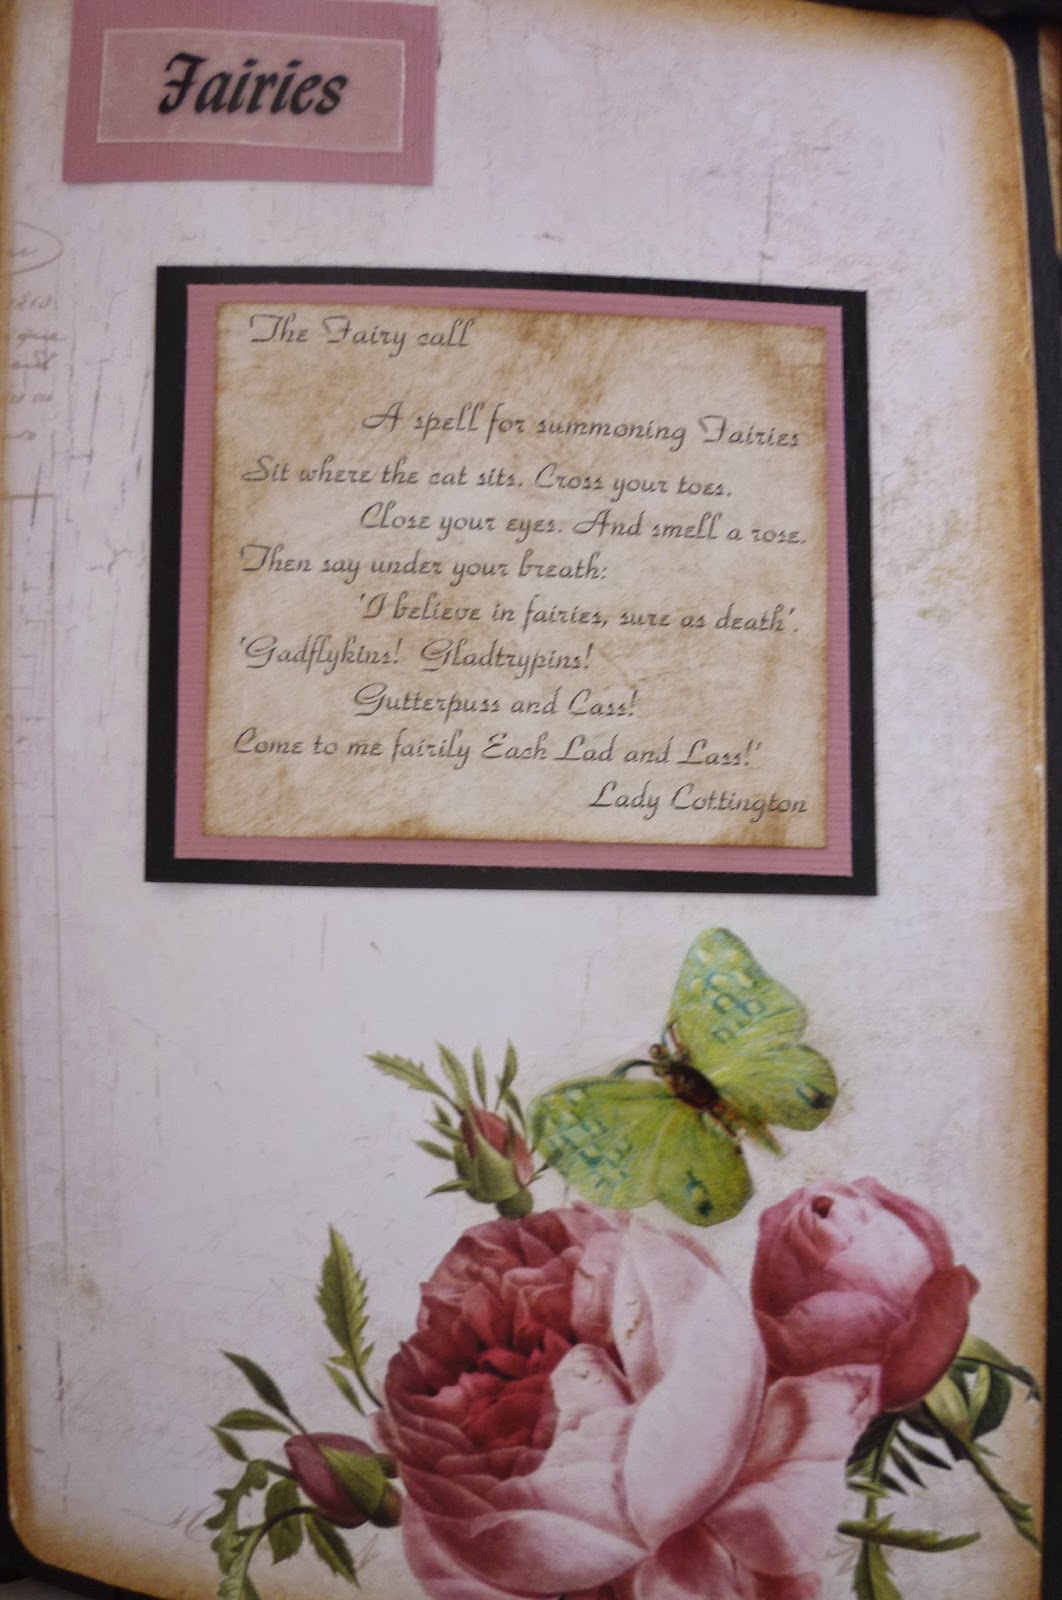 Fairies
The Fairy call
A spell for summoning Fairies
Sit where the cat sits. Cross your toes.
Close your eyes. And smell a rose.
Then say under your breath:
'I believe in fairies, sure as death'.
'Gadflykins! Gladtrypins!
Gutterpuss and Cass!
Come to me fairily Each Lad and Lass!'
Lady Cottington